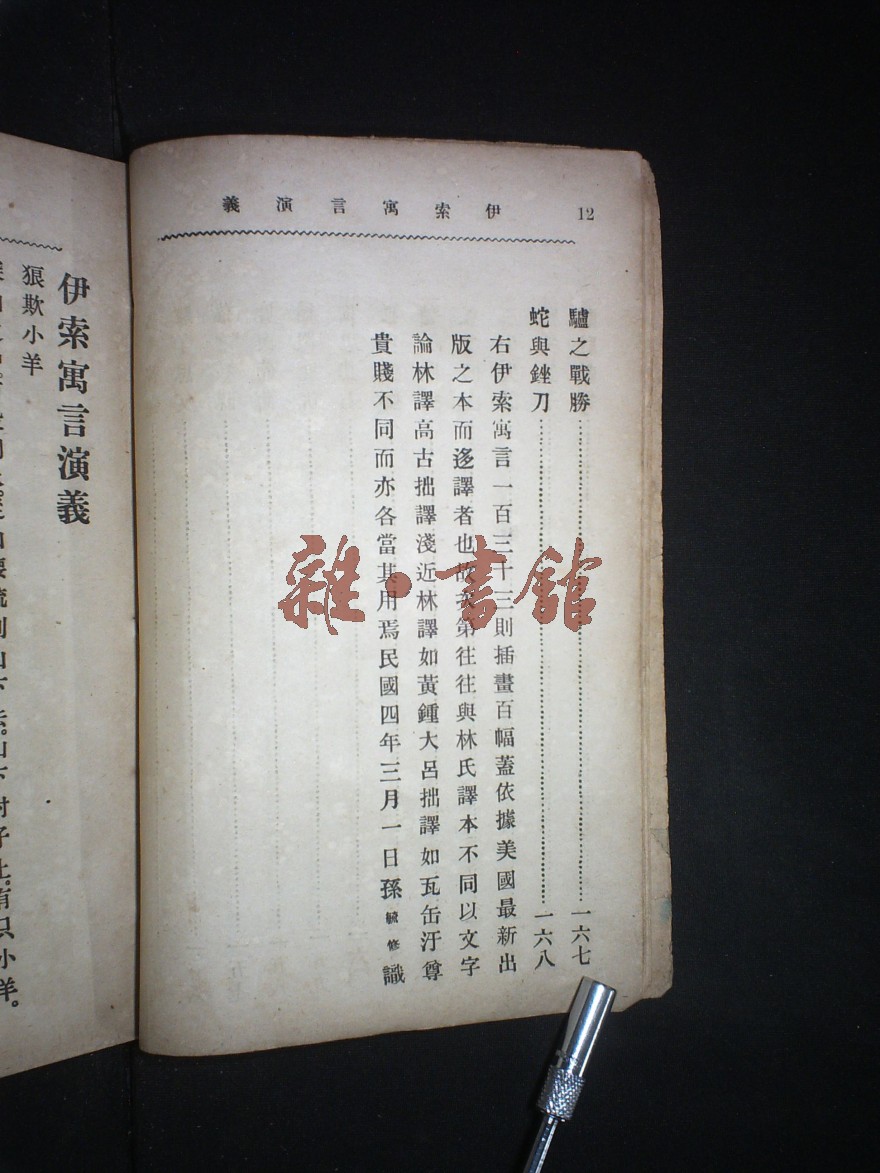 12
伊索寓言演義
驢之戰勝……一六七
蛇與銼刀……一六八
右伊索寓言一百三十三則插畫百幅蓋依據美國最新出
版之本而迻譯者也故次第往往與林氏譯本不同以文字
論林譯高古拙譯淺近林譯如黃鍾大呂拙譯如瓦缶汙尊
貴賤不同而亦各當其用焉民國四年三月一日孫毓修識
伊索寓言演義
狠欺小羊
山下村子上。有只小羊。
雜·書館